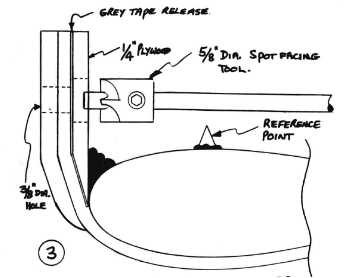 GREY TAPE RELEASE.
1/4" PLYWOOD
5/8" DIA. SPOT FACING
TOOL.
REFERENCE
POINT
3/8" DIA.
HOLE
3